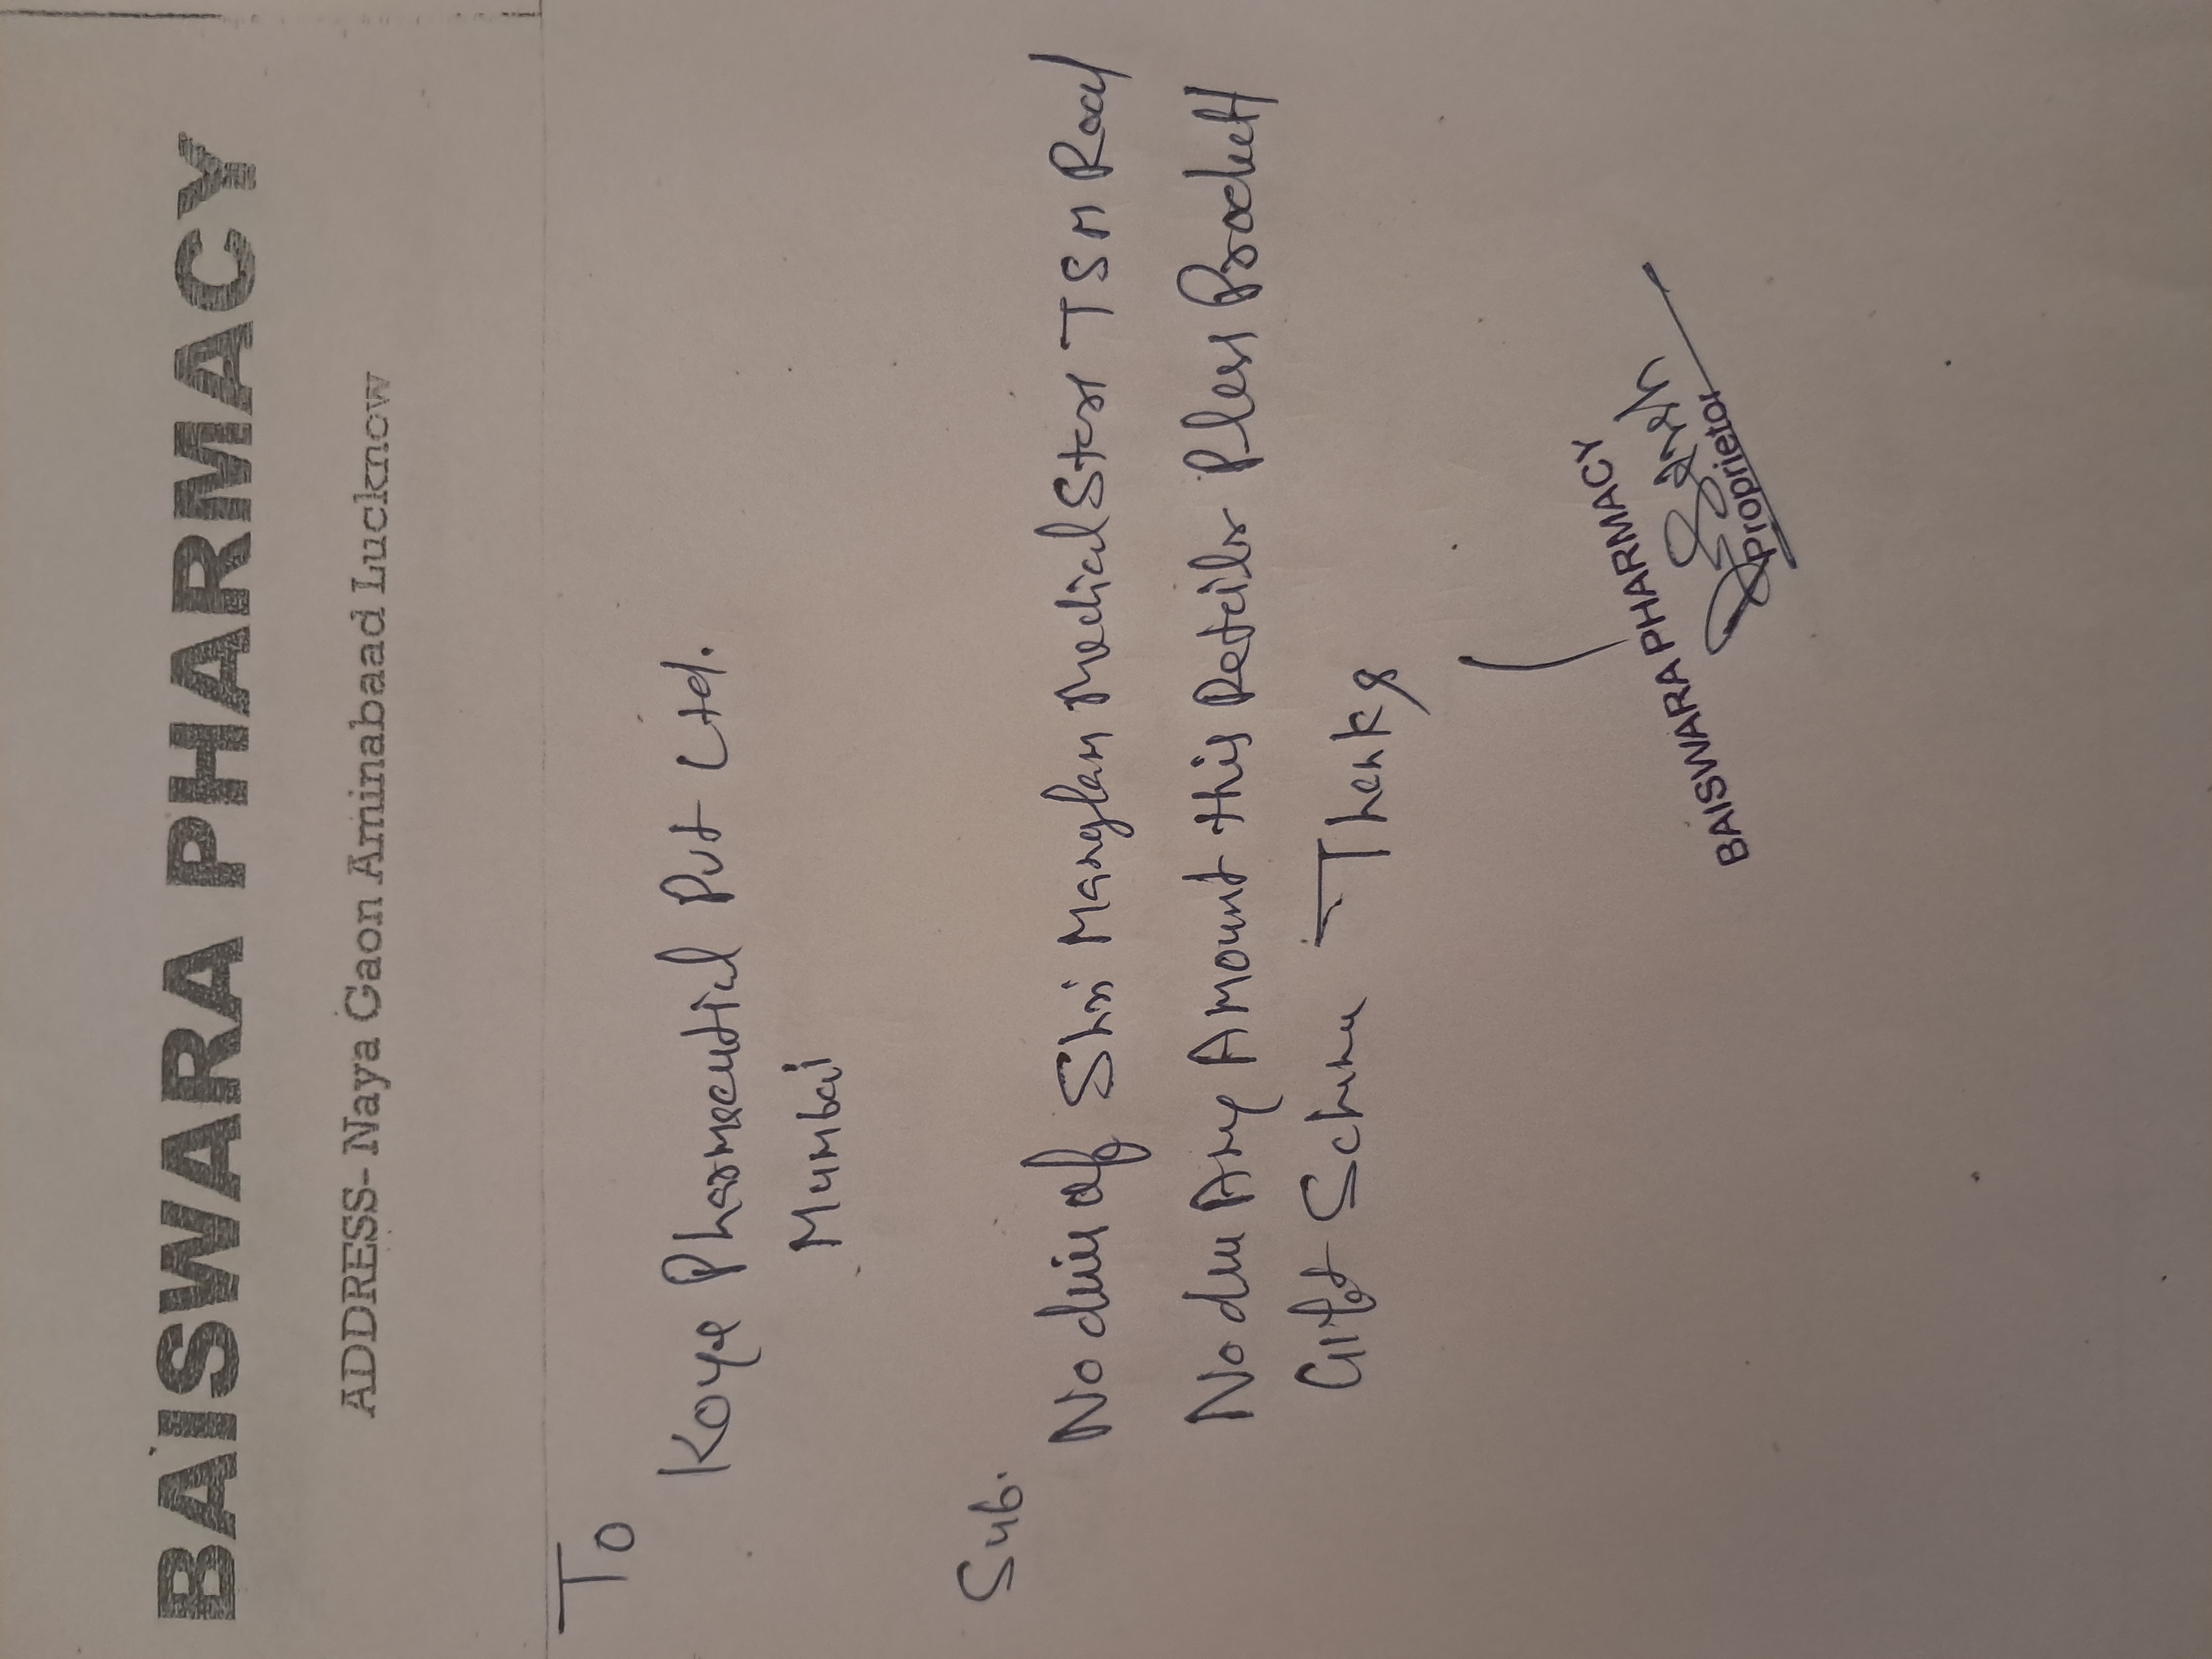 BAISWARA PHARMACY
ADDRESS-Naya Gaon Aminabaad Lucknow
To
Koye Pharmaceutical Pvt Ltd.
Mumbai
Sub.
No duis of Shri Manglam Medical Stear TSM Road
No due Any Amount this Retciler Pless Product
Gift Schme Thanks
BAISWARA PHARMACY
Proprietor